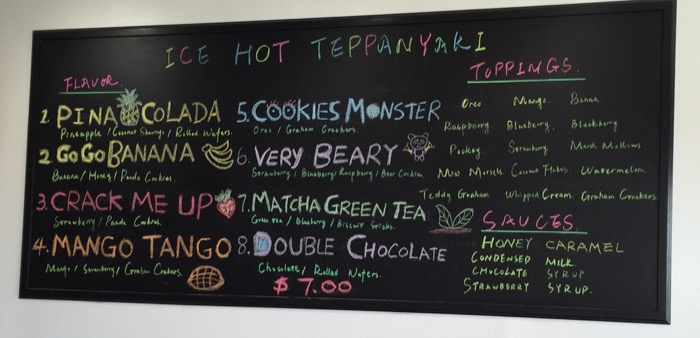 ICE HOT TEPPANYAKI
FLAVOR
1. PINA COLADA
Pineapple / Coconut Shavings / Rolled Wafers.
2. GO GO BANANA
Banana / Honey / Panda Cookies.
3. CRACK ME UP
Strawberry / Panda Cookies.
4. MANGO TANGO
Mango / Strawberry / Graham Crackers.
5. COOKIES MONSTER
Oreo / Graham Crackers.
6. VERY BEARY
Strawberry / Blueberry / Raspberry / Bear Cookies
7. MATCHA GREEN TEA
Green tea / Blueberry / Biscuit Sticks.
8. DOUBLE CHOCOLATE
Chocolate / Rolled Wafers.
$ 7.00
TOPPINGS.
Oreo Mango. Banana.
Raspberry. Blueberry. Blackberry
Pockey. Strawberry Marsh Mallows.
Mini Morsels. Coconut Flakes. Watermelon.
Teddy Graham. Whipped Cream. Graham Crackers.
SAUCES
HONEY CARAMEL
CONDENSED MILK.
CHOCOLATE SYRUP
STRAWBERRY SYRUP.